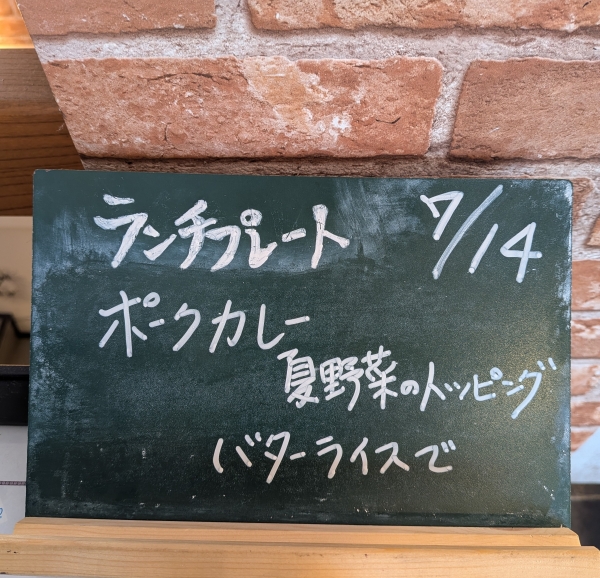 ランチプレート 7/14
ポークカレー
夏野菜のトッピング
バターライスで